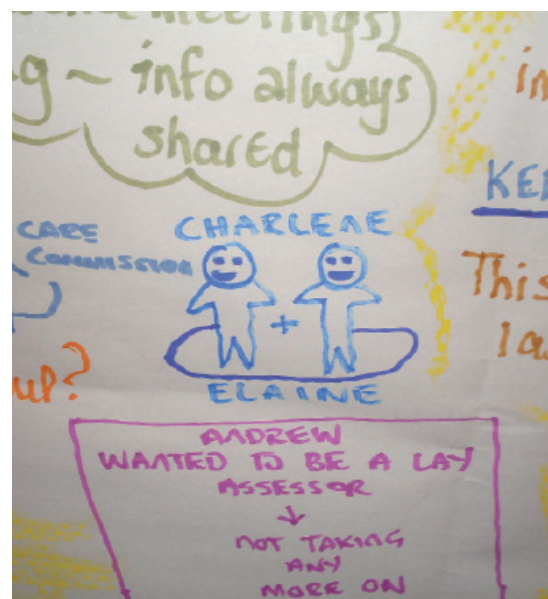 meetings
~ info always
shared
in
CARE
COMMISSION
CHARLENE
+
ELAINE
KEE
This
la
up?
ANDREW
WANTED TO BE A LAY
ASSESSOR
↓
NOT TAKING
ANY
MORE ON